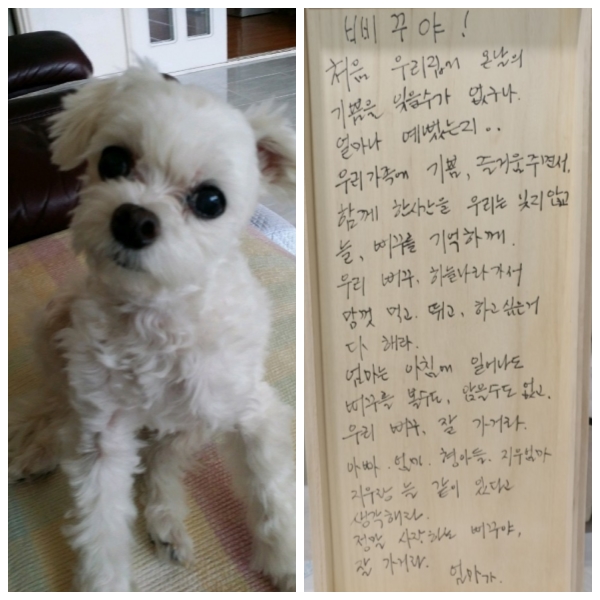 삐꾸야!
처음 우리집에 온날의
기쁨을 잊을수가 없구나.
얼마나 예뻤는지..
우리가족에 기쁨, 즐거움주면서,
함께 한시간을 우리는 잊지않고
늘, 삐꾸를 기억하께.
우리 삐꾸, 하늘나라가서
맘껏 먹고, 뛰고, 하고싶은거
다 해라.
엄마는 아침에 일어나도
삐꾸를 볼수도, 안을수도 없고.
우리 삐꾸, 잘 가거라.
아빠. 엄마. 형아들. 지우엄마
지우랑 늘 같이 있다고
생각해라.
정말 사랑하는 삐꾸야,
잘 가거라.
엄마가.